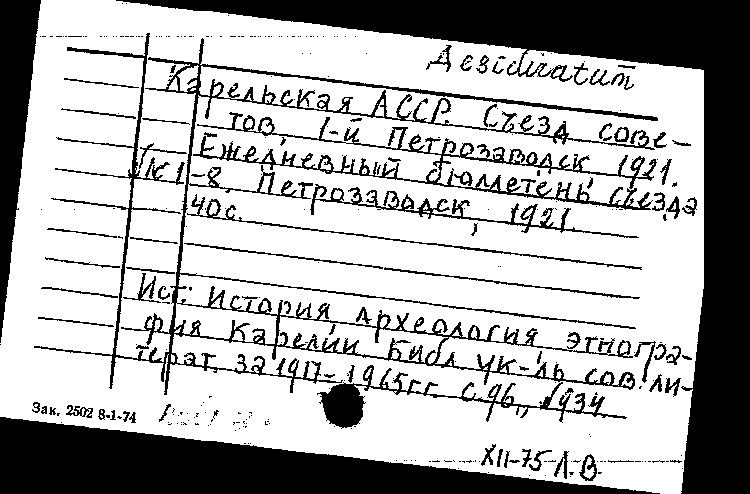 Desidiratum
Карельская АССР. Съезд сове-
тов, 1-й Петрозаводск 1921.
Ежедневный бюллетень съезда
№ 1-8. Петрозаводск, 1921.
40с.
Ист: История, археология, этногра-
фия Карелии Библ. ук-ль сов. ли-
терат. за 1917-1965гг. с.96, №934.
Зак. 2502 8-1-74
XII-75 Л.В.